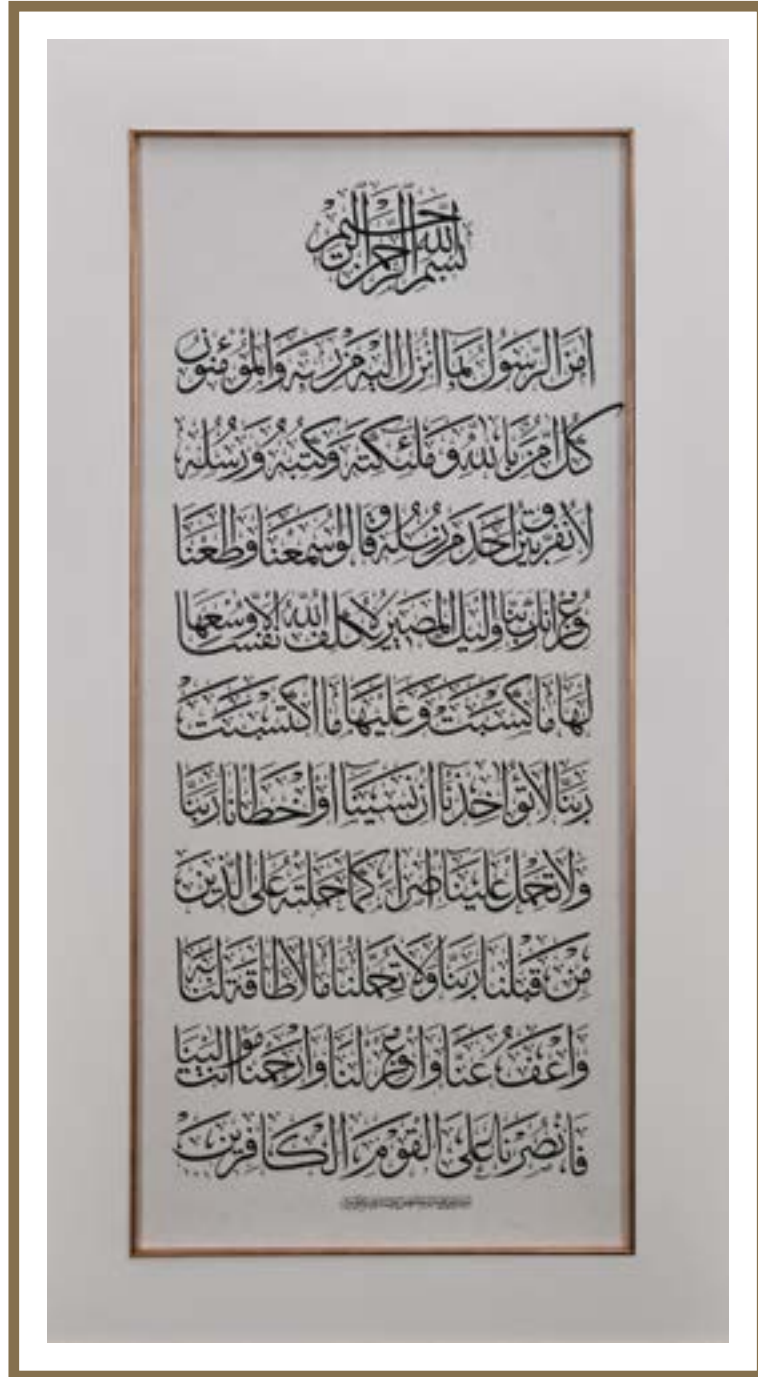 بسم الله الرحمن الرحيم
اٰمن الرسول بما انزل اليه من ربه والمؤمنون
كل اٰمن بالله وملئكته وكتبه ورسله
لا نفرق بين احد من رسله وقالوا سمعنا واطعنا
غفرانك ربنا واليك المصير لا يكلف الله نفسا الا وسعها
لها ما كسبت وعليها ما اكتسبت
ربنا لا تؤاخذنا ان نسينا او اخطانا ربنا
ولا تحمل علينا اصرا كما حملته على الذين
من قبلنا ربنا ولا تحملنا ما لا طاقة لنا به
واعف عنا واغفر لنا وارحمنا انت مولينا
فانصرنا على القوم الكافرين